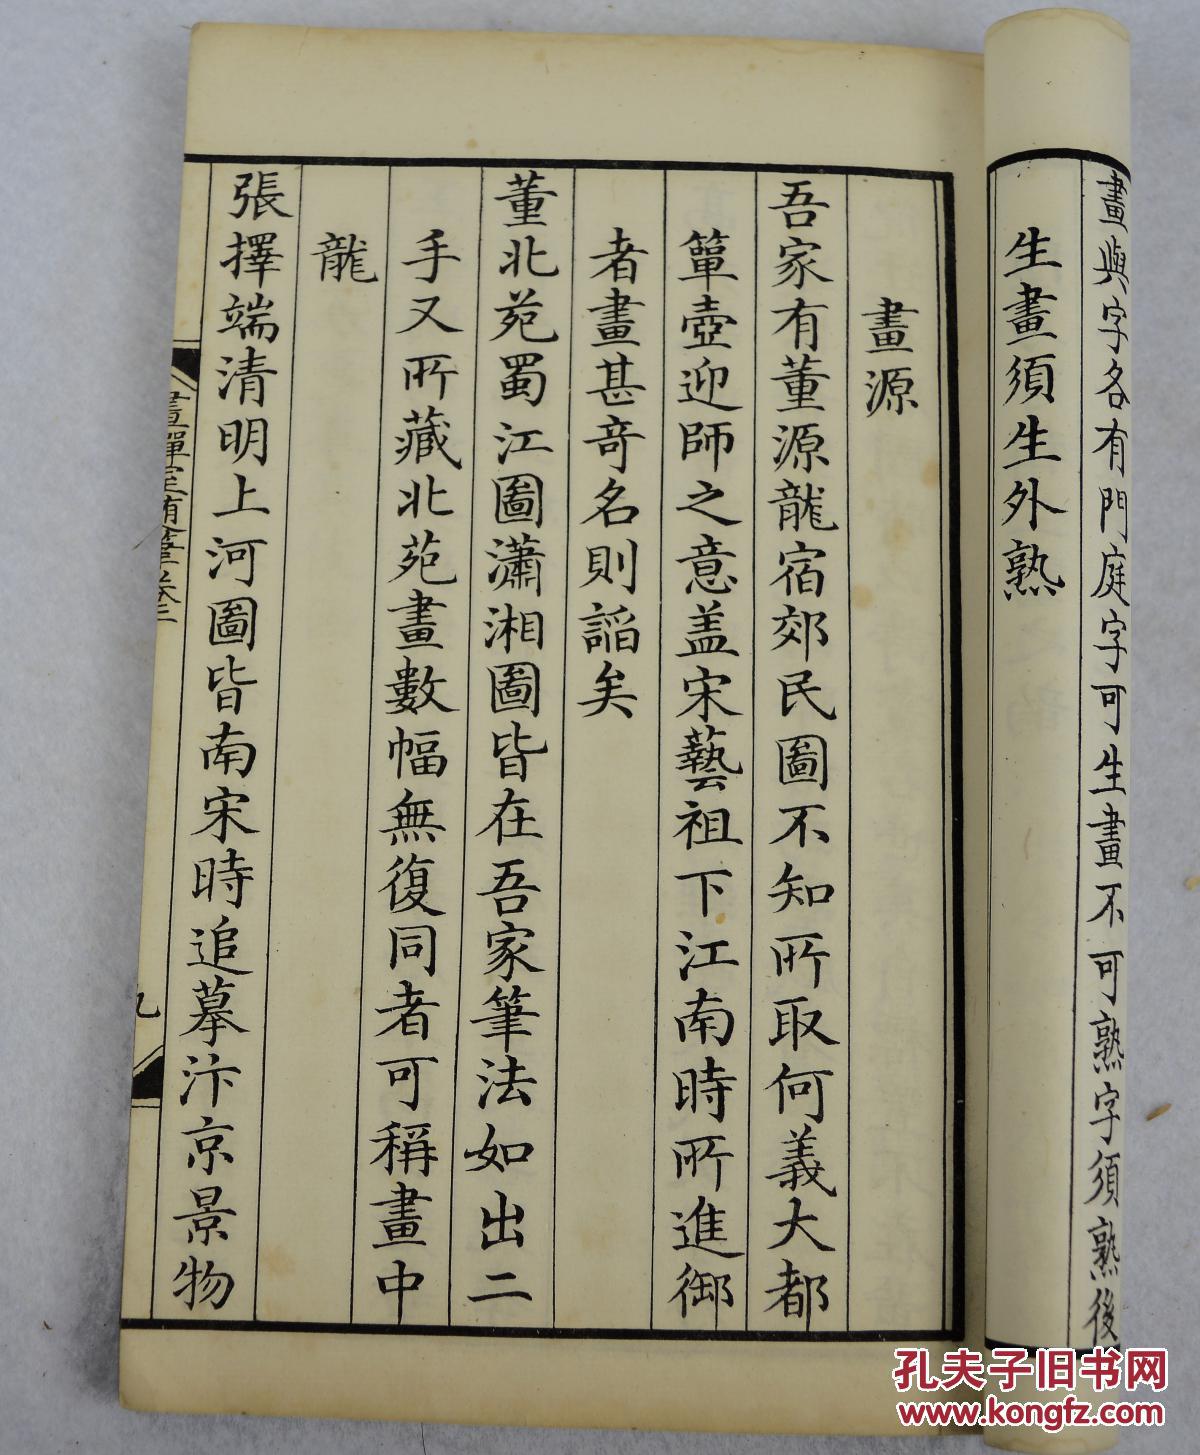 畫與字各有門庭字可生畫不可熟字須熟後
生畫須生外熟
畫源
吾家有董源龍宿郊民圖不知所取何義大都
簞壺迎師之意盖宋藝祖下江南時所進御
者畫甚奇名則謟矣
董北苑蜀江圖瀟湘圖皆在吾家筆法如出二
手又所藏北苑畫數幅無復同者可稱畫中
龍
張擇端清明上河圖皆南宋時追摹汴京景物
畫禪室隨筆卷二
九
孔夫子旧书网
www.kongfz.com